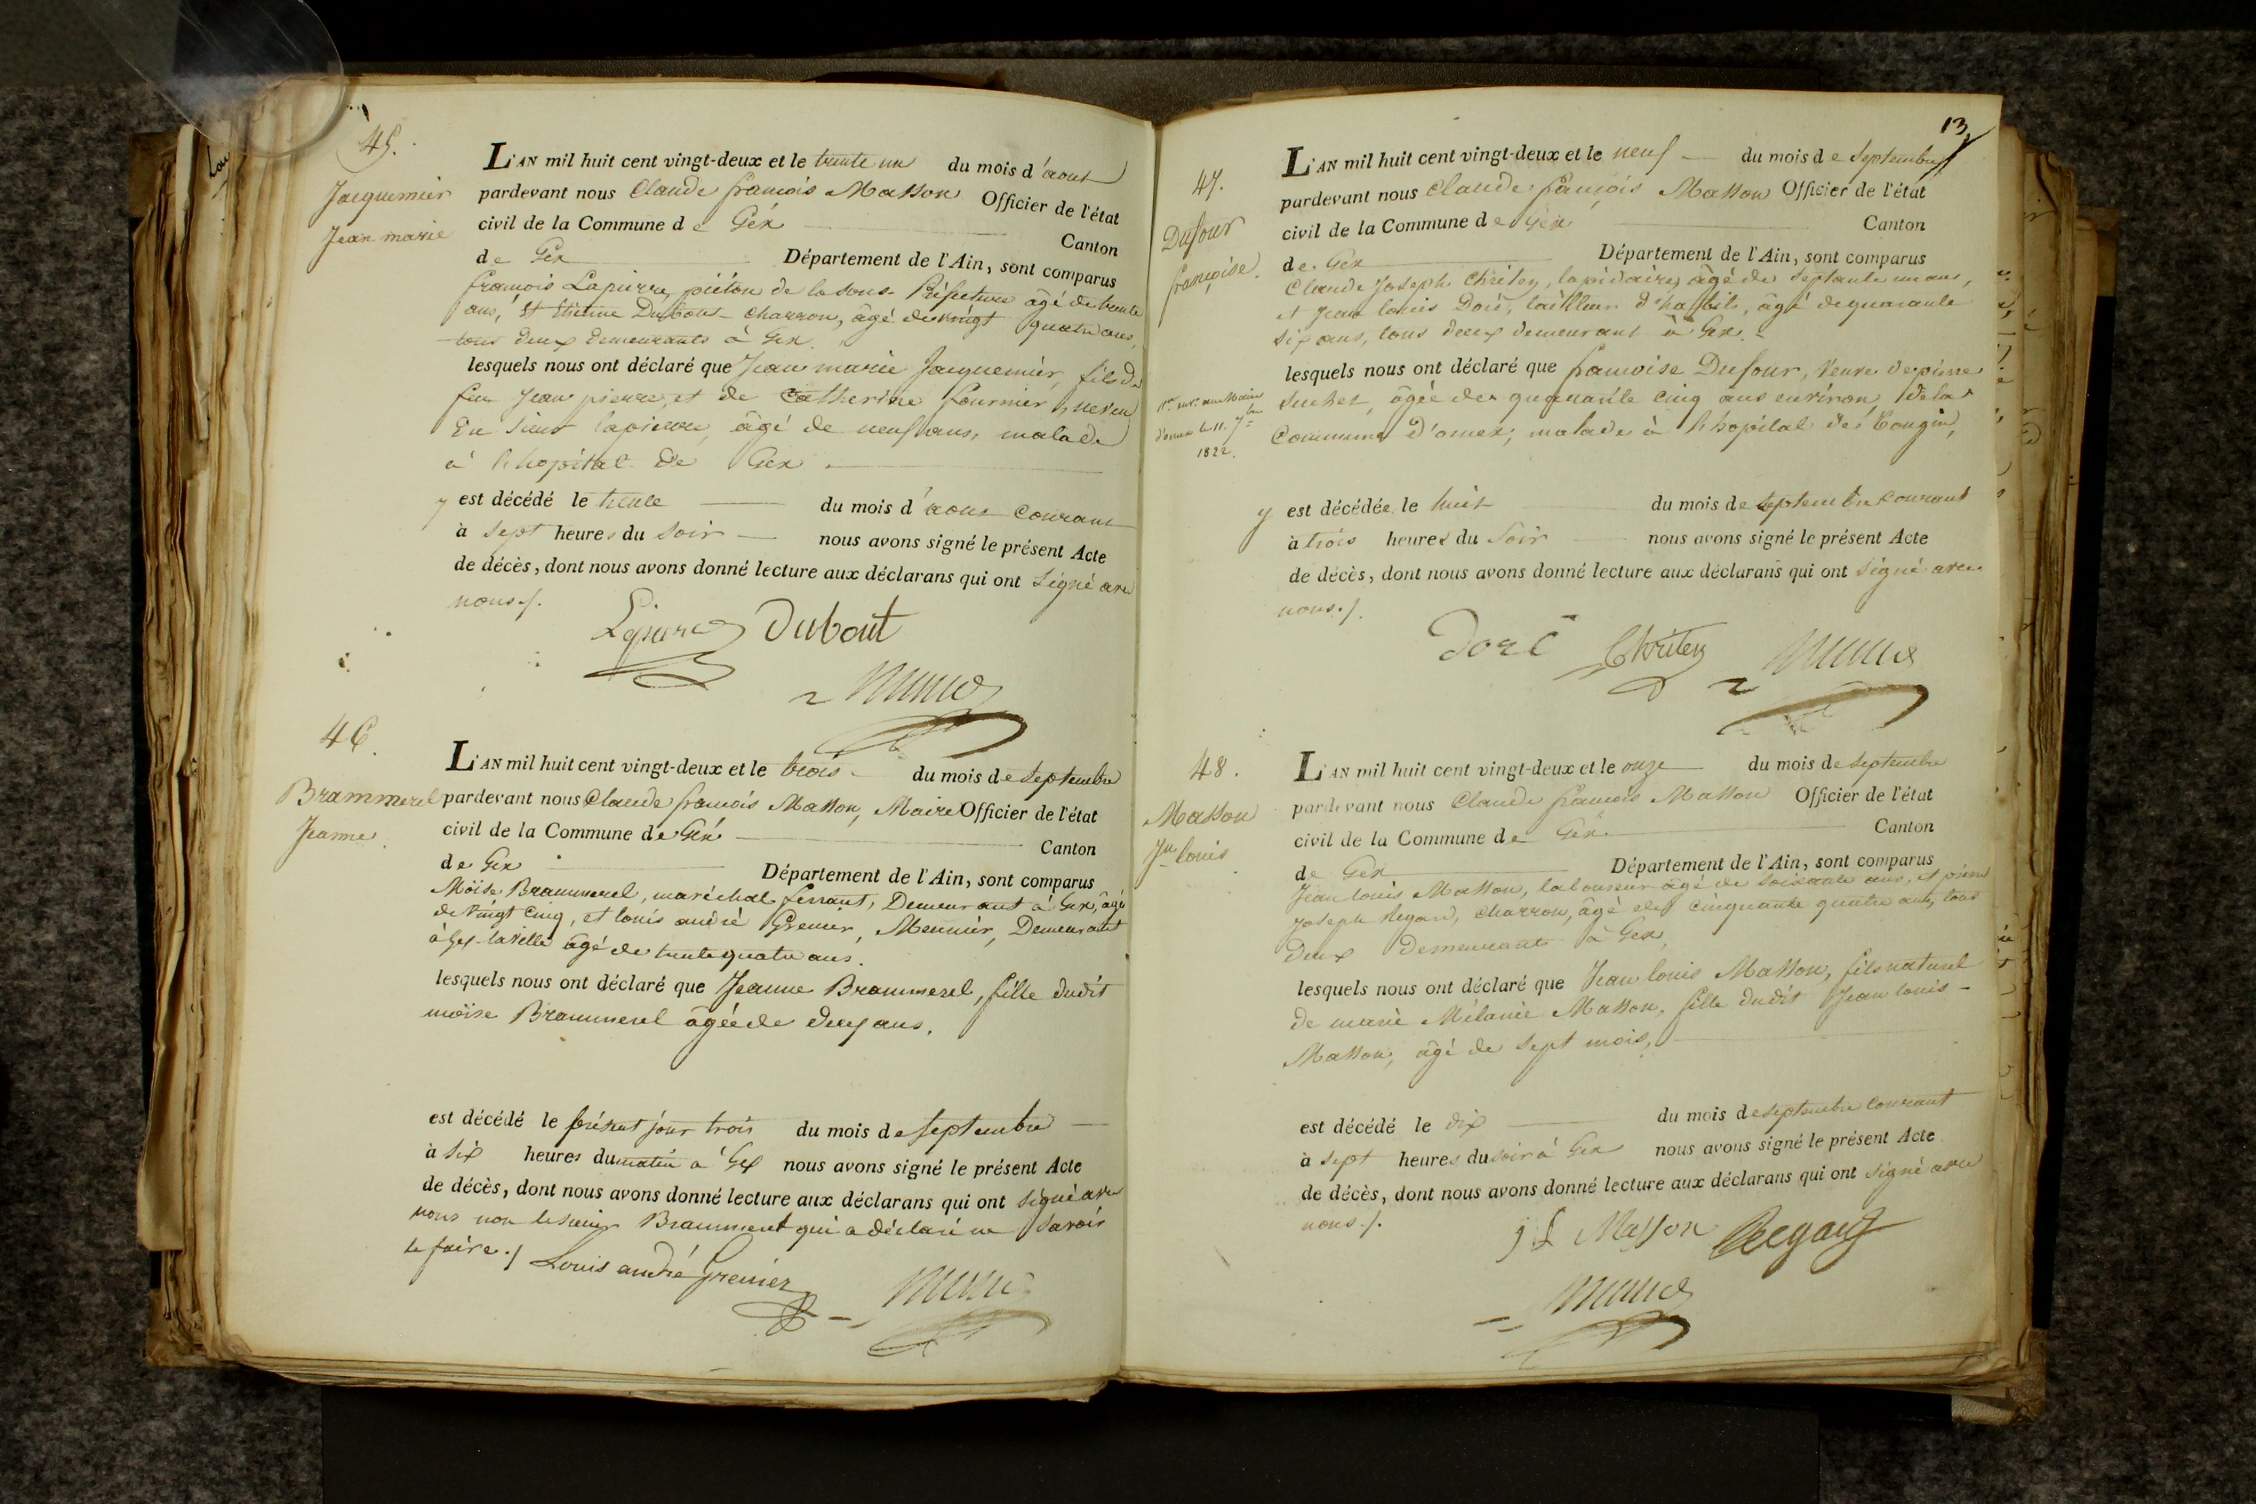 45.
Jacquemier
Jean marie
L'AN mil huit cent vingt-deux et le trente un du mois d'aout
pardevant nous Claude francois Masson Officier de l'état
civil de la Commune de Géx Canton
de Gex Département de l'Ain, sont comparus
francois Lapierre, piéton de la sous-Préfecture âgé de trente
ans, et Etienne Dubout charron, âgé de vingt quatre ans,
tous deux demeurants à Gex.
lesquels nous ont déclaré que Jean marie Jacquemier, fils de
feu Jean pierre, et de Catherine fournier, neveu
Du Sieur lapierre, âgé de neuf ans, malade
à l'hopital de Gex
y est décédé le trente du mois d'aout courant
à sept heures du soir nous avons signé le présent Acte
de décès, dont nous avons donné lecture aux déclarans qui ont signé avec
nous./.
Lapierre Dubout
46.
Brammerel
Jeanne.
L'AN mil huit cent vingt-deux et le trois du mois de septembre
pardevant nous Claude francois Masson, Maire Officier de l'état
civil de la Commune de Géx Canton
de Gex Département de l'Ain, sont comparus
Moïse Brammerel, maréchal ferrant, Demeurant à Gex, âgé
de vingt cinq, et louis andré Grenier, Meunier, Demeurant
à Gex-la-ville âgé de trente quatre ans.
lesquels nous ont déclaré que Jeanne Brammerel, fille dudit
moïse Brammerel âgée de deux ans.
est décédé le présent jour trois du mois de septembre
à six heures du matin à Gex nous avons signé le présent Acte
de décès, dont nous avons donné lecture aux déclarans qui ont signé avec
nous non le sieur Brammerel qui a déclaré ne savoir
le faire./ Louis andré Grenier
13
47.
Dufour
françoise.
d'ornex le 11. 7bre
1822.
L'AN mil huit cent vingt-deux et le neuf du mois de septembre
pardevant nous Claude françois Masson Officier de l'état
civil de la Commune de Gex Canton
de Gex Département de l'Ain, sont comparus
Claude Joseph Chriten, lapidaire, âgé de septante un ans,
et Jean louis Doré, tailleur d'habits, âgé de quarante
six ans, tous deux demeurant à Gex.
lesquels nous ont déclaré que francoise Dufour, veuve de pierre
Suchet, âgée de quarante cinq ans environ, de la
Commune d'ornex, malade à l'hopital de Tougin,
y est décédée le huit du mois de septembre courant
à trois heures du soir nous avons signé le présent Acte
de décès, dont nous avons donné lecture aux déclarans qui ont signé avec
nous./.
Doré Chriten
48.
Masson
Jn louis
L'AN mil huit cent vingt-deux et le onze du mois de septembre
pardevant nous Claude francois Masson Officier de l'état
civil de la Commune de Gex Canton
de Gex Département de l'Ain, sont comparus
Jean louis Masson, laboureur âgé de soixante ans, et pierre
joseph Regard, charron, âgé de cinquante quatre ans, tous
deux demeurant à Gex,
lesquels nous ont déclaré que Jean louis Masson, fils naturel
de marie Mélanie Masson, fille dudit Jean louis
Masson, âgé de sept mois,
est décédé le dix du mois de septembre courant
à sept heures du soir à Gex nous avons signé le présent Acte
de décès, dont nous avons donné lecture aux déclarans qui ont signé avec
nous./.
J L Masson Regard